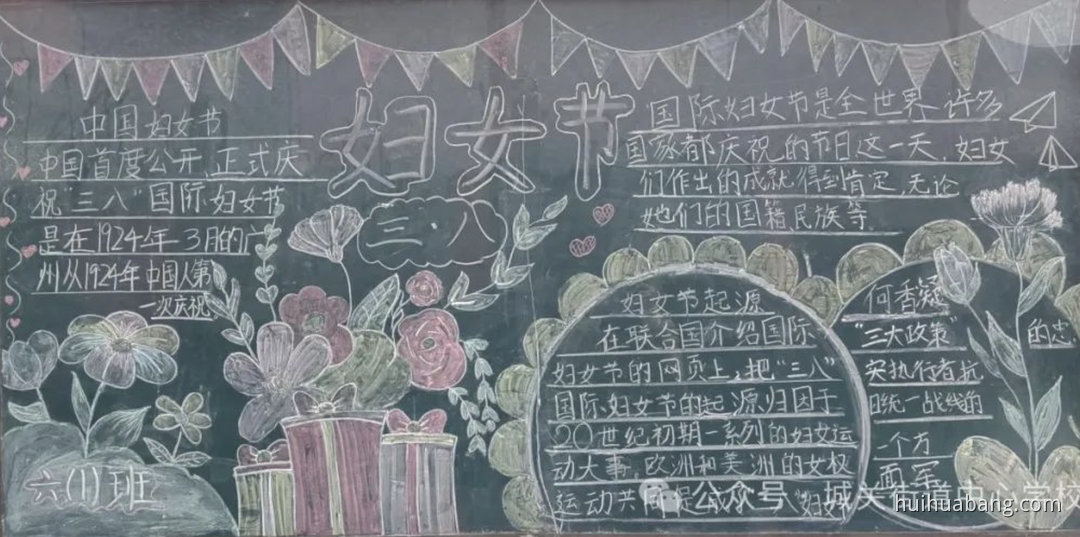 妇女节
三·八
中国妇女节
中国首度公开、正式庆
祝“三八”国际妇女节
是在1924年3月的广
州从1924年中国人第
一次庆祝
国际妇女节是全世界许多
国家都庆祝的节日这一天,妇女
们作出的成就得到肯定,无论
她们的国籍、民族等
妇女节起源
在联合国介绍国际
妇女节的网页上,把“三八”
国际妇女节的起源归因于
20世纪初期一系列的妇女运
动大事,欧洲和美洲的女权
运动共同促 “妇女
何香凝
“三大政策” 的忠
实执行者抗
日统一战线的
一个方
面军
六(1)班
公众号 城关街道中心学校
huihuabang.com